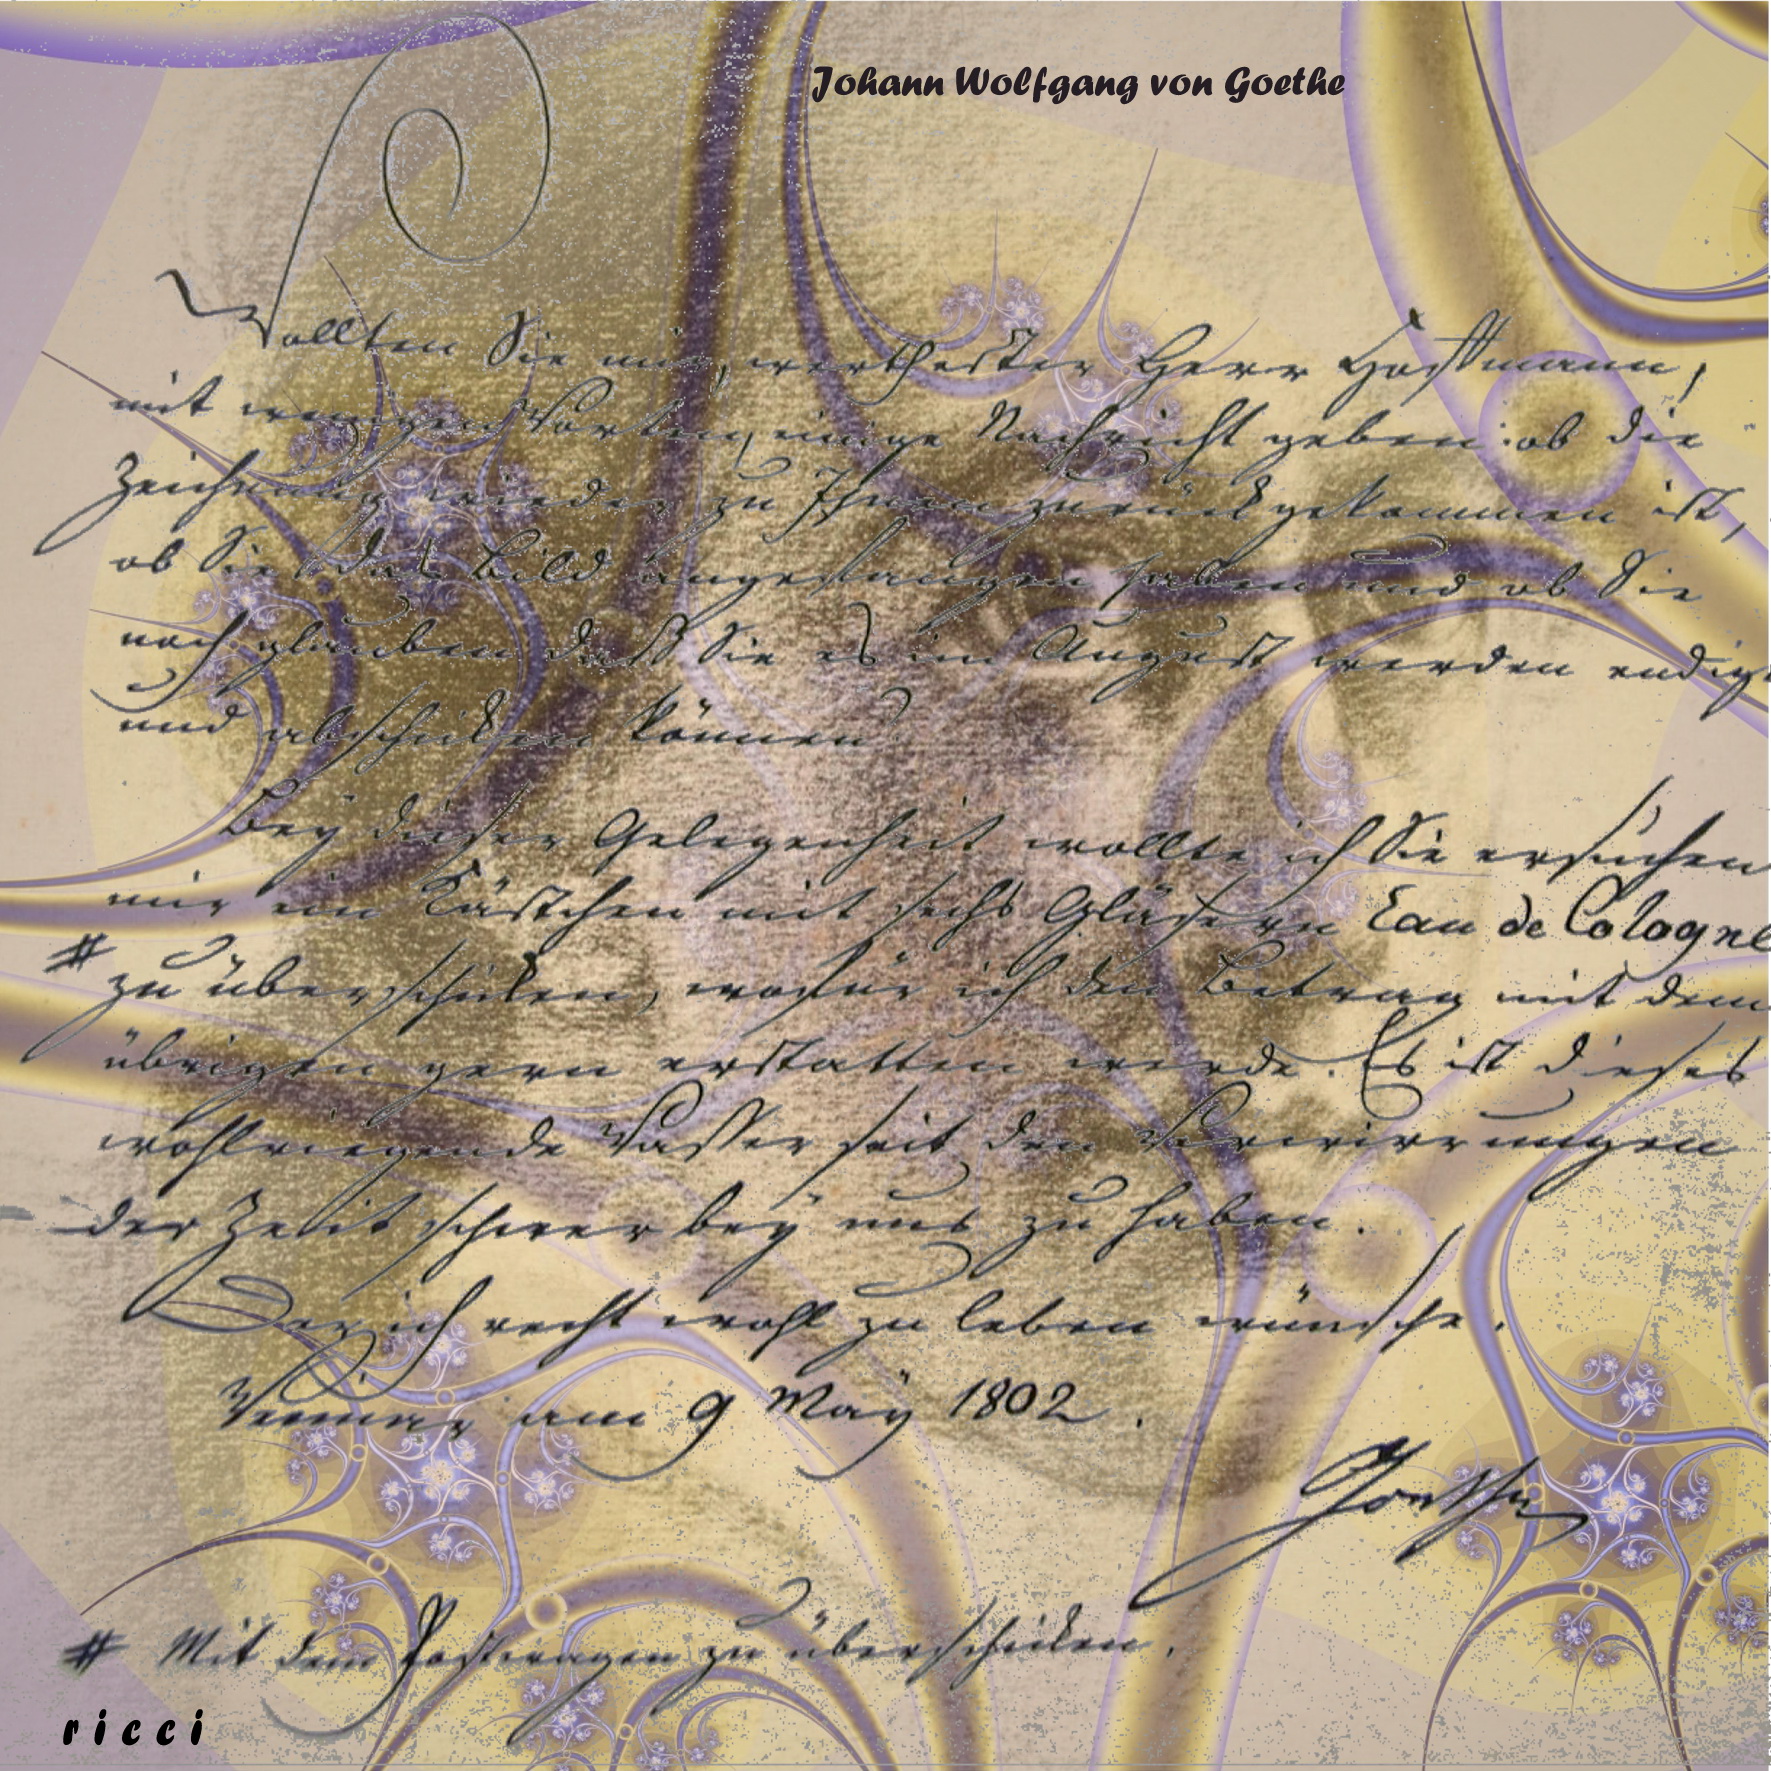 Johann Wolfgang von Goethe
Wollten Sie mir, werthester Herr Hoffmann,
mit wenigen Worten einige Nachricht geben: ob die
Zeichnung wieder zu Ihnen zurück gekommen ist,
ob Sie das Bild angefangen haben und ob Sie
noch glauben daß Sie es im August werden endigen
und abschicken können.
Bey dieser Gelegenheit wollte ich Sie ersuchen
mir ein Kästchen mit sechs Gläsern Eau de Cologne
# zu überschicken, wofür ich den Betrag mit dem
übrigen gern erstatten werde. Es ist dieses
wohlriegende Wasser seit den Verwirrungen
der Zeit schwer bey uns zu haben.
Der ich recht wohl zu leben wünsche.
Weimar am 9 May 1802.
Goethe
# Mit dem Postwagen zu überschicken.
ricci